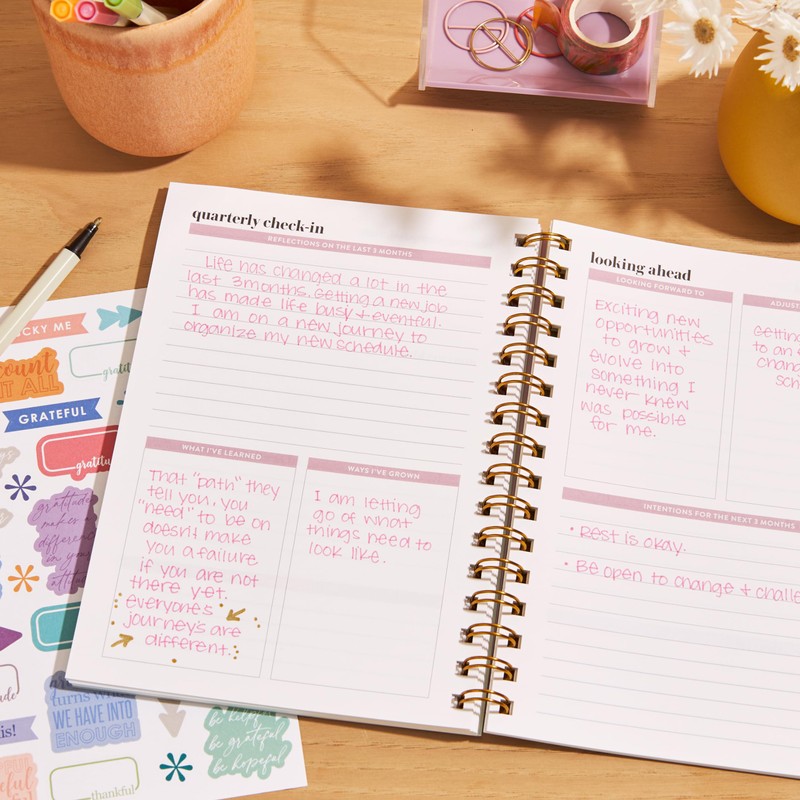 quarterly check-in
REFLECTIONS ON THE LAST 3 MONTHS
Life has changed a lot in the
last 3 months. Getting a new job
has made life busy + eventful.
I am on a new journey to
organize my new schedule.
WHAT I'VE LEARNED
That "path" they
tell you, you
"need" to be on
doesn't make
you a failure
if you are not
there yet.
everyone's
journeys are
different.
WAYS I'VE GROWN
I am letting
go of what
things need to
look like.
looking ahead
LOOKING FORWARD TO
Exciting new
opportunities
to grow +
evolve into
something I
never knew
was possible
for me.
ADJUST
Getting
to an
chang
sch
INTENTIONS FOR THE NEXT 3 MONTHS
• Rest is okay.
• Be open to change + challe
CKY ME
count
IT ALL
GRATEFUL
gratitu
gratitude
makes
differen
in you
attitu
turns wh
WE HAVE INTO
ENOUGH
is!
be helpful
be grateful
be hopeful
thankful